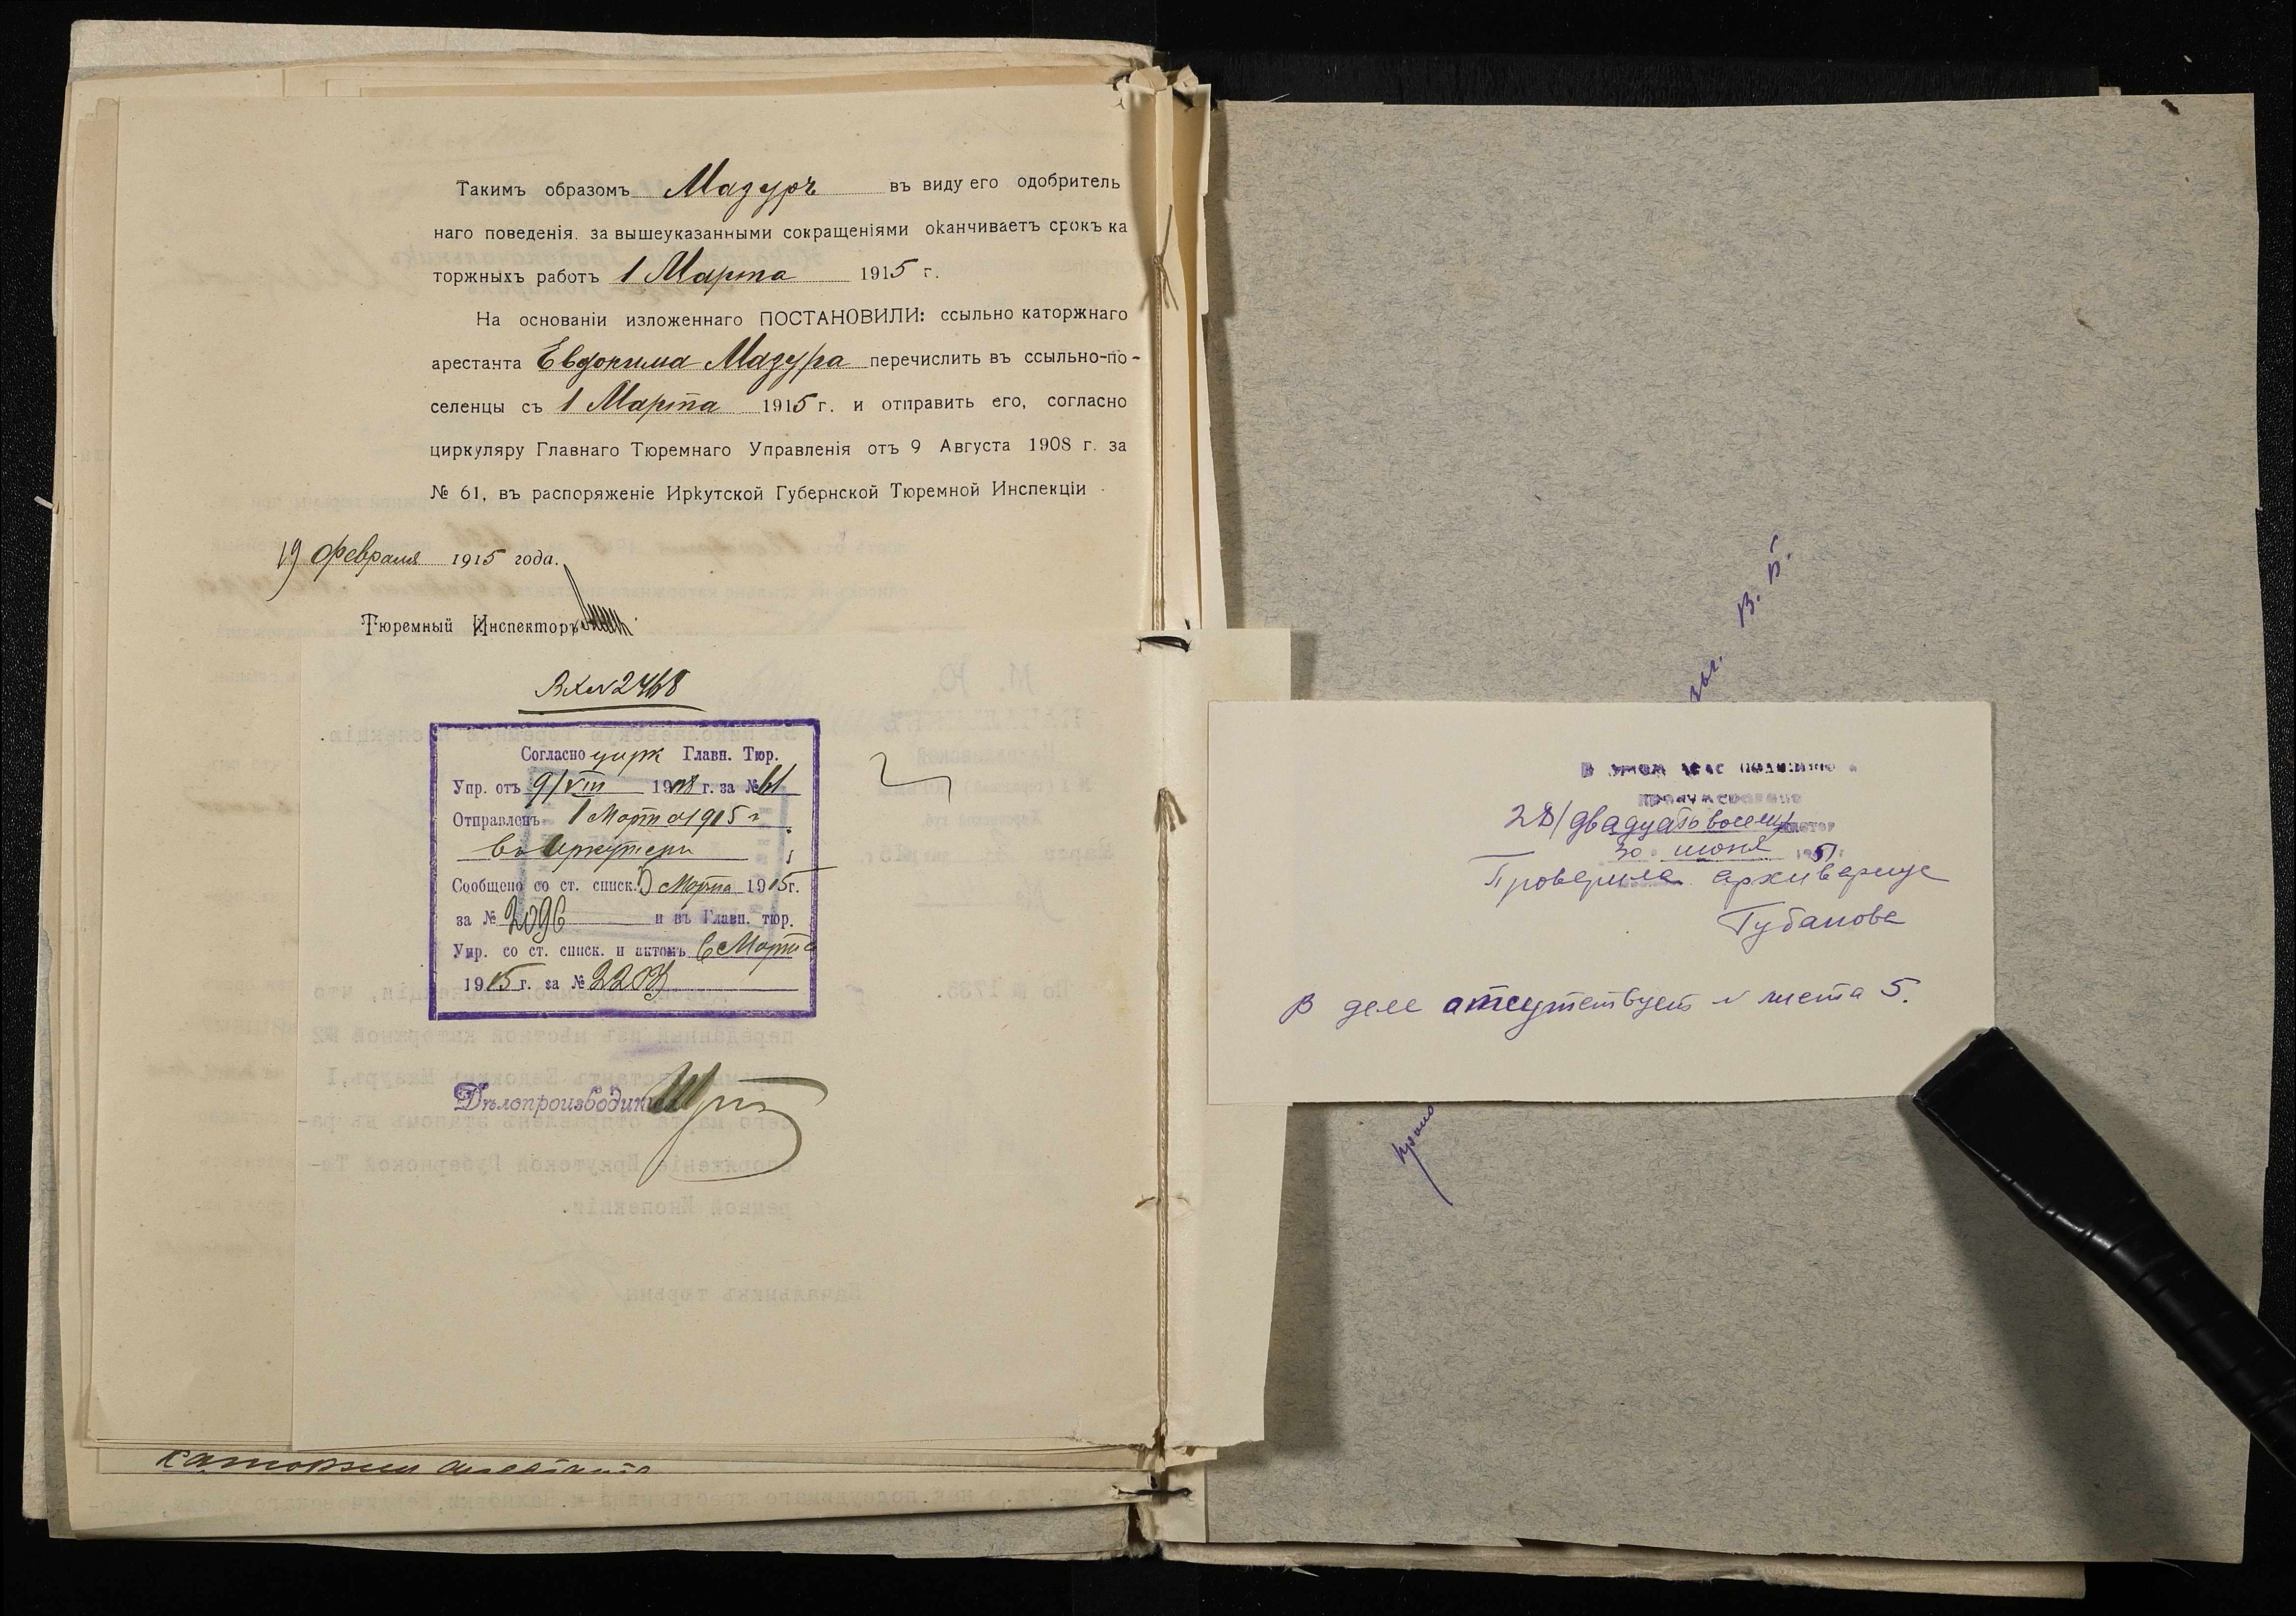 Такимъ образомъ Мазуръ въ виду его одобритель
наго поведенія. за вышеуказанными сокращеніями оканчиваетъ срокъ ка
торжныхъ работъ 1 Марта 1915 г.
На основаніи изложеннаго ПОСТАНОВИЛИ: ссыльно каторжнаго
арестанта Евдокима Мазура перечислить въ ссыльно-по-
селенцы съ 1 Марта 1915 г. и отправить его, согласно
циркуляру Главнаго Тюремнаго Управленія отъ 9 Августа 1908 г. за
№ 61, въ распоряженіе Иркутской Губернской Тюремной Инспекціи
19 Февраля 1915 года.
Тюремный Инспекторъ
Вх № 2468
Согласно цирк Главн. Тюр.
Упр. отъ 9/VIII 1908 г. за № 61
Отправленъ 1 Марта 1915 г
въ
Сообщено со ст. списк. 5 Марта 1915 г.
за № 2096 и въ Главн. тюр.
Упр. со ст. списк. и актомъ 6 Марта
1915 г. за № 2203
Дѣлопроизводитель
каторжн арестанта
В. Б.
В этом деле подшито и
пронумеровано
28/двадцать восемь листов
30 июня 1951
Проверила архивариус
Губанова
В деле отсутствует № листа 5.